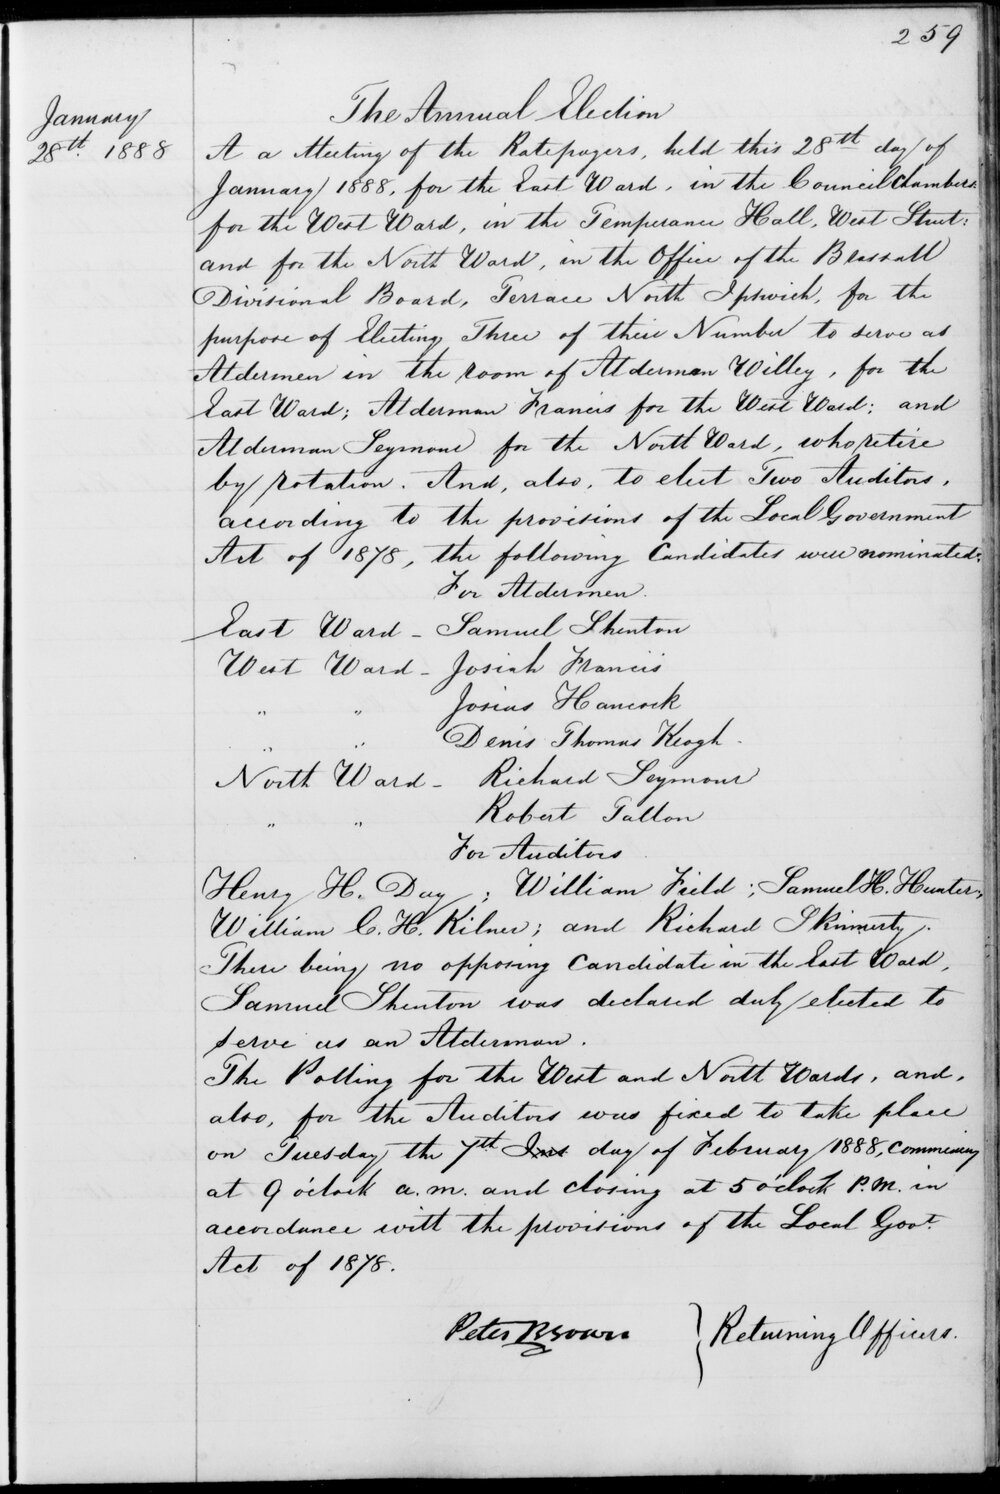 259
January
28th. 1888
The Annual Election
A a Meeting of the Ratepayers, held this 28th day of
January 1888, for the East Ward, in the Council Chambers:
for the West Ward, in the Temperance Hall, West Street:
and for the North Ward, in the Office of the Brassall
Divisional Board, Terrace North Ipswich, for the
purpose of Electing Three of their Number to serve as
Aldermen in the room of Alderman Willey, for the
East Ward; Alderman Francis for the West Ward; and
Alderman Seymour for the North Ward, who retire
by rotation. And, also, to elect Two Auditors,
according to the provisions of the Local Government
Act of 1878, the following Candidates were nominated:
For Aldermen.
East Ward - Samuel Shenton
West Ward - Josiah Francis
" " Josias Hancock
" " Denis Thomas Keogh.
North Ward - Richard Seymour
" " Robert Tallon
For Auditors
Henry H. Day; William Field; Samuel H. Hunter;
William C. H. Kilner; and Richard Skinnerty.
There being no opposing Candidate in the East Ward,
Samuel Shenton was declared duly elected to
serve as an Alderman.
The Polling for the West and North Wards, and,
also, for the Auditors was fixed to take place
on Tuesday the 7th Ins day of February 1888, commencing
at 9 o'clock a.m. and closing at 5 o'clock P.M. in
accordance with the provisions of the Local Govt.
Act of 1878.
Peter Brown } Returning Officers.